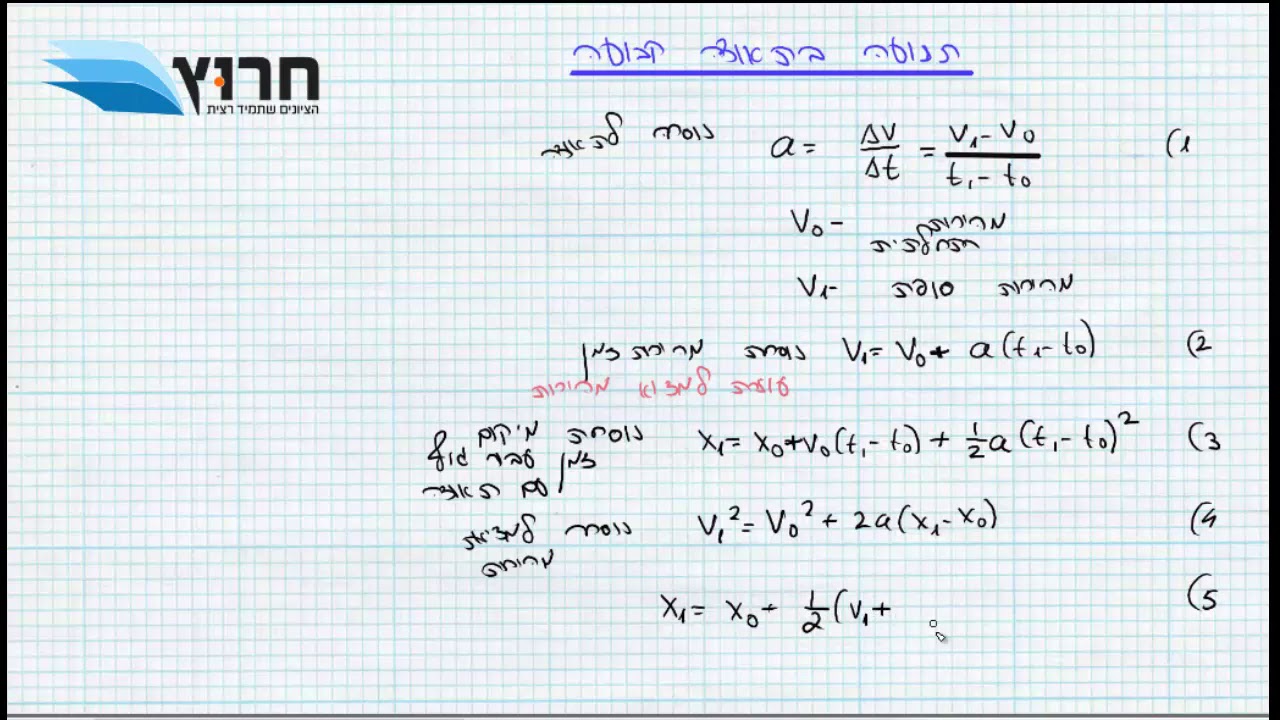 חרוץ
הציונים שתמיד רצית
תנועה בתאוצה קבועה
1) a = Δv/Δt = (v₁ - v₀)/(t₁ - t₀) נוסחה לתאוצה
v₀ - מהירות התחלתית
v₁ - מהירות סופית
2) v₁ = v₀ + a(t₁ - t₀) נוסחת מהירות זמן
עוזרת למצוא מהירות
3) x₁ = x₀ + v₀(t₁ - t₀) + ½a(t₁ - t₀)² נוסחת מיקום
זמן עבור גוף
עם תאוצה
4) v₁² = v₀² + 2a(x₁ - x₀) נוסחה למציאת
מהירות
5) x₁ = x₀ + ½(v₁ +